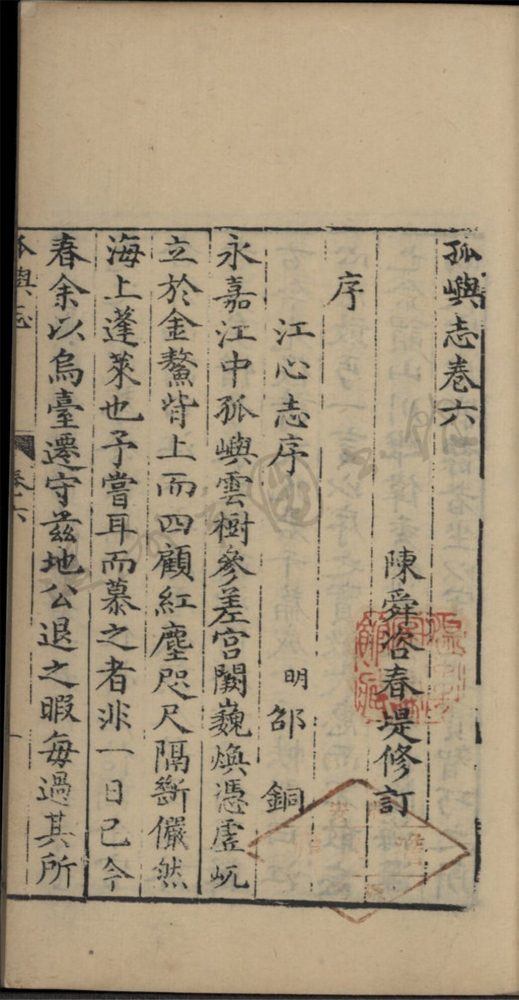 孤嶼志卷六
陳舜咨春堤修訂
序
江心志序
明 邵 銅
永嘉江中孤嶼雲樹參差宫闕巍煥憑虛屹
立於金鰲背上而四顧紅塵咫尺隔斷儼然
海上蓬萊也予嘗耳而慕之者非一日已今
春余以烏臺遷守兹地公退之暇每過其所
孤嶼志
卷六
一